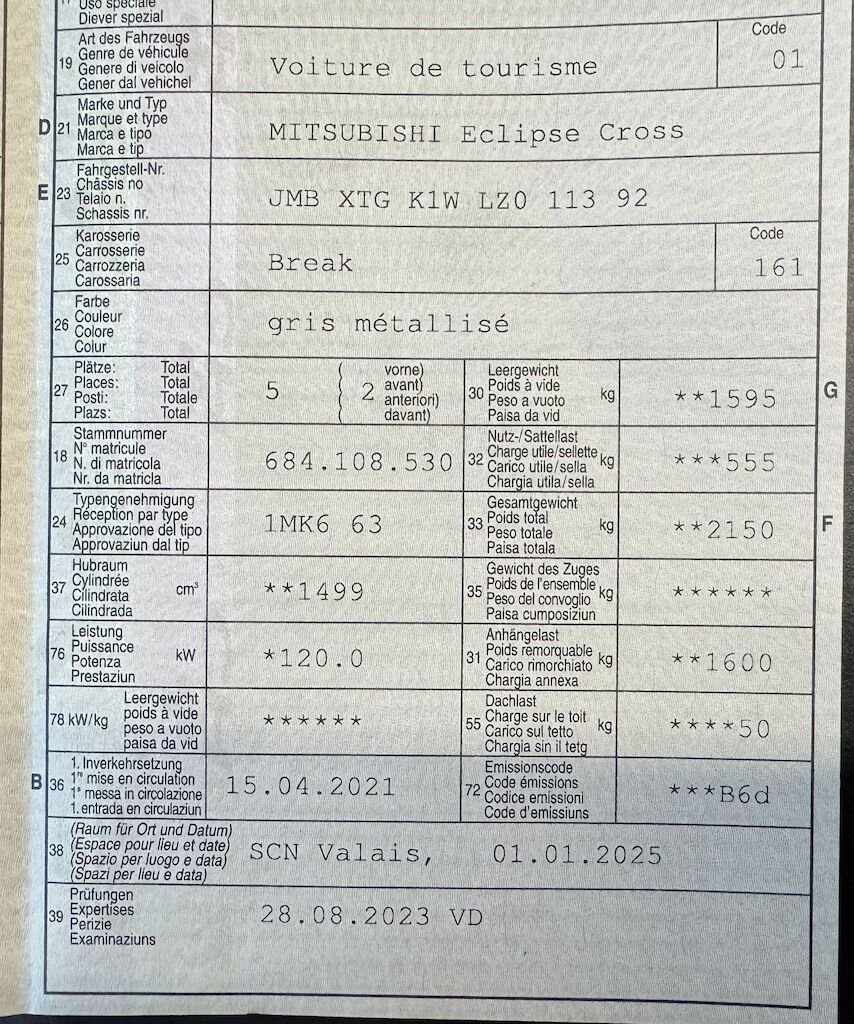 17 Uso speciale
Diever spezial
19 Art des Fahrzeugs
Genre de véhicule
Genere di veicolo
Gener dal vehichel
Voiture de tourisme
Code
01
D 21 Marke und Typ
Marque et type
Marca e tipo
Marca e tip
MITSUBISHI Eclipse Cross
E 23 Fahrgestell-Nr.
Châssis no
Telaio n.
Schassis nr.
JMB XTG K1W LZ0 113 92
25 Karosserie
Carrosserie
Carrozzeria
Carossaria
Break
Code
161
26 Farbe
Couleur
Colore
Colur
gris métallisé
27 Plätze: Total
Places: Total
Posti: Totale
Plazs: Total
5 ( 2 vorne)
avant)
anteriori)
davant)
30 Leergewicht
Poids à vide
Peso a vuoto
Paisa da vid
kg
**1595
G
18 Stammnummer
N° matricule
N. di matricola
Nr. da matricla
684.108.530
32 Nutz-/Sattellast
Charge utile/sellette
Carico utile/sella
Chargia utila/sella
kg
***555
24 Typengenehmigung
Réception par type
Approvazione del tipo
Approvaziun dal tip
1MK6 63
33 Gesamtgewicht
Poids total
Peso totale
Paisa totala
kg
**2150
F
37 Hubraum
Cylindrée
Cilindrata
Cilindrada
cm³
**1499
35 Gewicht des Zuges
Poids de l'ensemble
Peso del convoglio
Paisa cumposiziun
kg
******
76 Leistung
Puissance
Potenza
Prestaziun
kW
*120.0
31 Anhängelast
Poids remorquable
Carico rimorchiato
Chargia annexa
kg
**1600
78 kW/kg Leergewicht
poids à vide
peso a vuoto
paisa da vid
******
55 Dachlast
Charge sur le toit
Carico sul tetto
Chargia sin il tetg
kg
****50
B 36 1. Inverkehrsetzung
1re mise en circulation
1a messa in circolazione
1. entrada en circulaziun
15.04.2021
72 Emissionscode
Code émissions
Codice emissioni
Code d'emissiuns
***B6d
38 (Raum für Ort und Datum)
(Espace pour lieu et date)
(Spazio per luogo e data)
(Spazi per lieu e data)
SCN Valais, 01.01.2025
39 Prüfungen
Expertises
Perizie
Examinaziuns
28.08.2023 VD